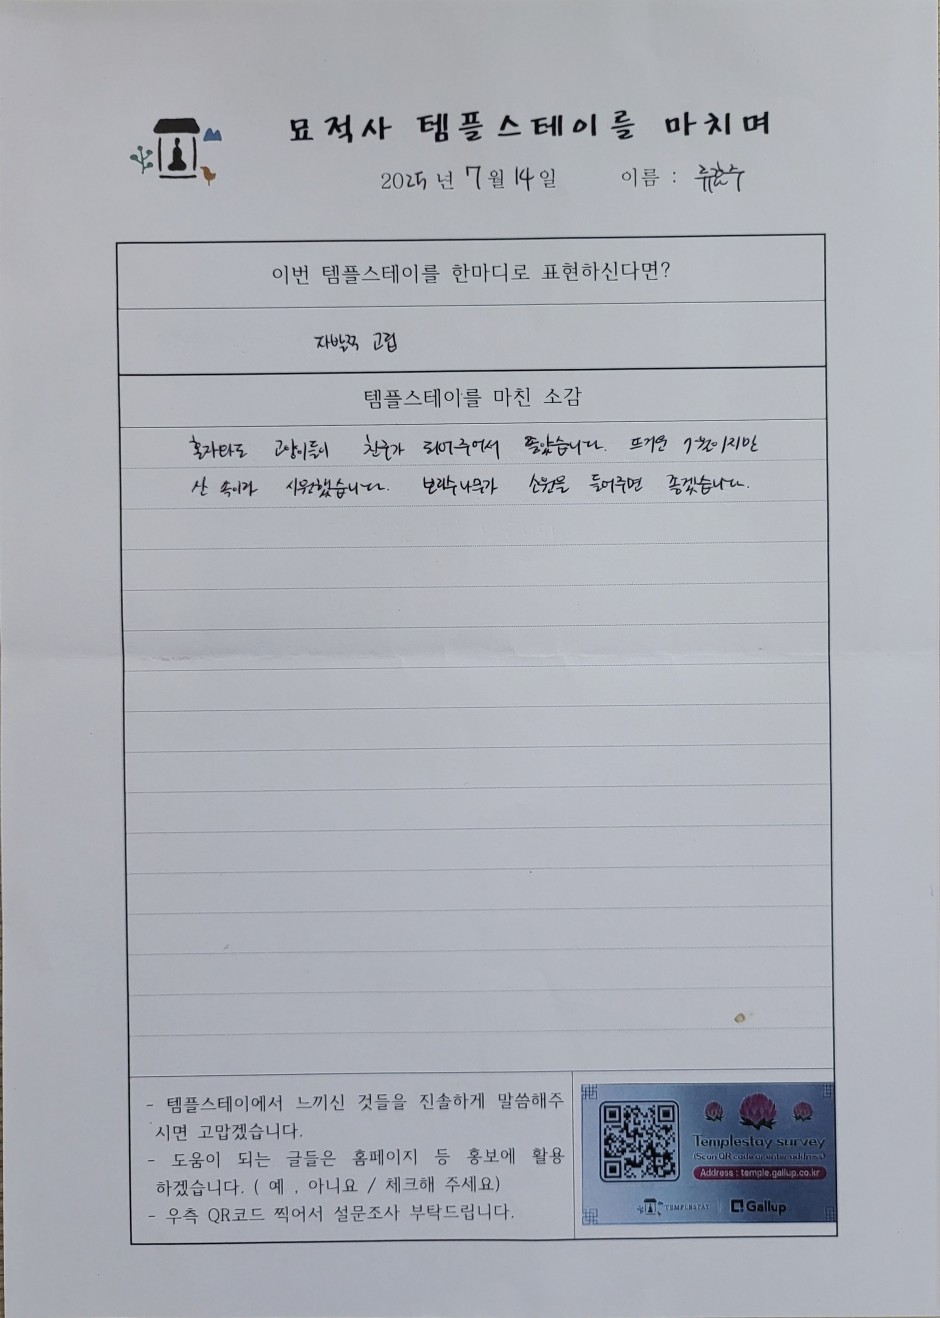 묘적사 템플스테이를 마치며
2025년 7월 14일 이름 :
이번 템플스테이를 한마디로 표현하신다면?
자발적 고립
템플스테이를 마친 소감
혼자라도 고양이들이 친구가 되어주어서 좋았습니다. 뜨거운 7월이지만
산 속이라 시원했습니다. 보리수나무가 소원을 들어주면 좋겠습니다.
- 템플스테이에서 느끼신 것들을 진솔하게 말씀해주
시면 고맙겠습니다.
- 도움이 되는 글들은 홈페이지 등 홍보에 활용
하겠습니다. ( 예 , 아니요 / 체크해 주세요)
- 우측 QR코드 찍어서 설문조사 부탁드립니다.
Templestay survey
(Scan QR code or enter address)
Address : temple.gallup.co.kr
TEMPLESTAY Gallup